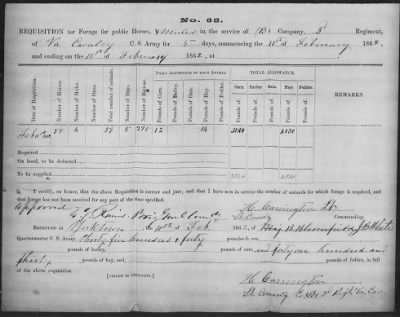 No. 62.
REQUISITION for Forage for public Horses, & Mules, in the service of (B) Company, 3d Regiment,
of Va Cavalry C. S. Army for 5 days, commencing the 11th of February 1862,
and ending on the 15th of February 1862, at
DAILY ALLOWANCE TO EACH ANIMAL. TOTAL ALLOWANCE.
Date of Requisition. Number of Horses. Number of Mules. Total number of animals. Number of days. Number of Rations. Pounds of Corn. Pounds of Barley. Pounds of Oats. Pounds of Hay. Pounds of Fodder. Corn. Barley. Oats. Hay. Fodder. REMARKS.
Pounds. Pounds. Pounds. Pounds. Pounds.
59 5 295 12 14 3540 4130
Required
On hand, to be deducted
To be supplied 3540 4130
I certify, on honor, that the above Requisition is correct and just; and that I have now in service the number of animals for which forage is required, and that forage has not been received for any part of the time specified.
Approved
H. Carrington Lt.
Brig. Genl Comdg
Commanding.
RECEIVED at Yorktown the 11th of Feb. 1862, of Maj
Quartermaster C. S. Army, Thirty five hundred & forty pounds of corn,
pounds of oats, and forty one hundred and
thirty pounds of hay, and pounds of fodder.
[SIGNED IN DUPLICATE.]
H. Carrington
Lt. Comdg Co. B 3d Regt Va Cav